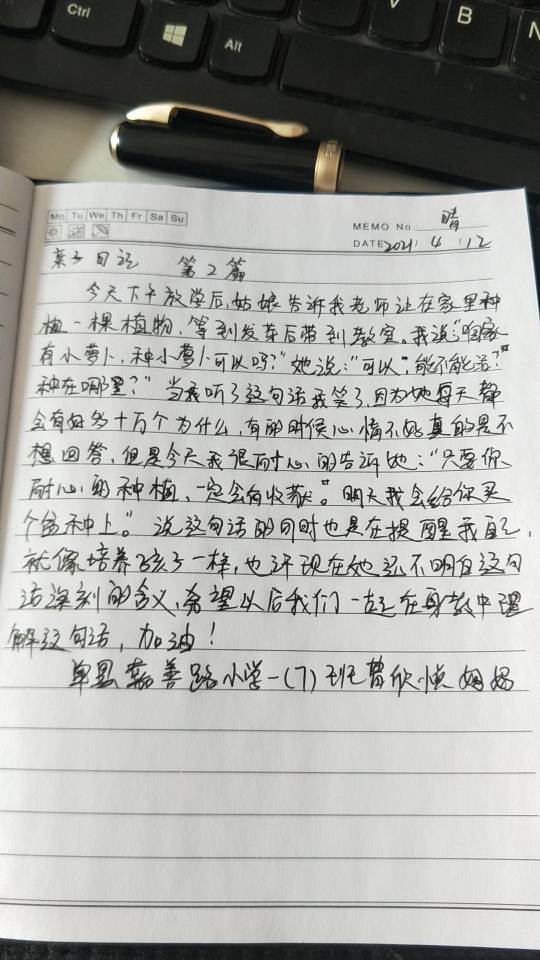 Ctrl
Alt
V
B
N
Mo Tu We Th Fr Sa Su
MEMO No. 晴
DATE 2021 / 4 / 12
亲子日记 第2篇
今天下午放学后,姑娘告诉我老师让在家里种
植一棵植物,等到发芽后带到教室。我说:"咱家
有小萝卜,种小萝卜可以吗?"她说:"可以",能不能活?
种在哪里?"当我听了这句话我笑了,因为她每天都
会有好多十万个为什么,有的时候心情不好真的是不
想回答,但是今天我很耐心的告诉她:"只要你
耐心的种植,一定会有收获"。明天我会给你买
个盆种上。"说这句话的同时也是在提醒我自己,
就像培养孩子一样,也许现在她还不明白这句
话深刻的含义,希望以后我们一起在身教中理
解这句话,加油!
单县 善路小学一(7)班曹欣 妈妈